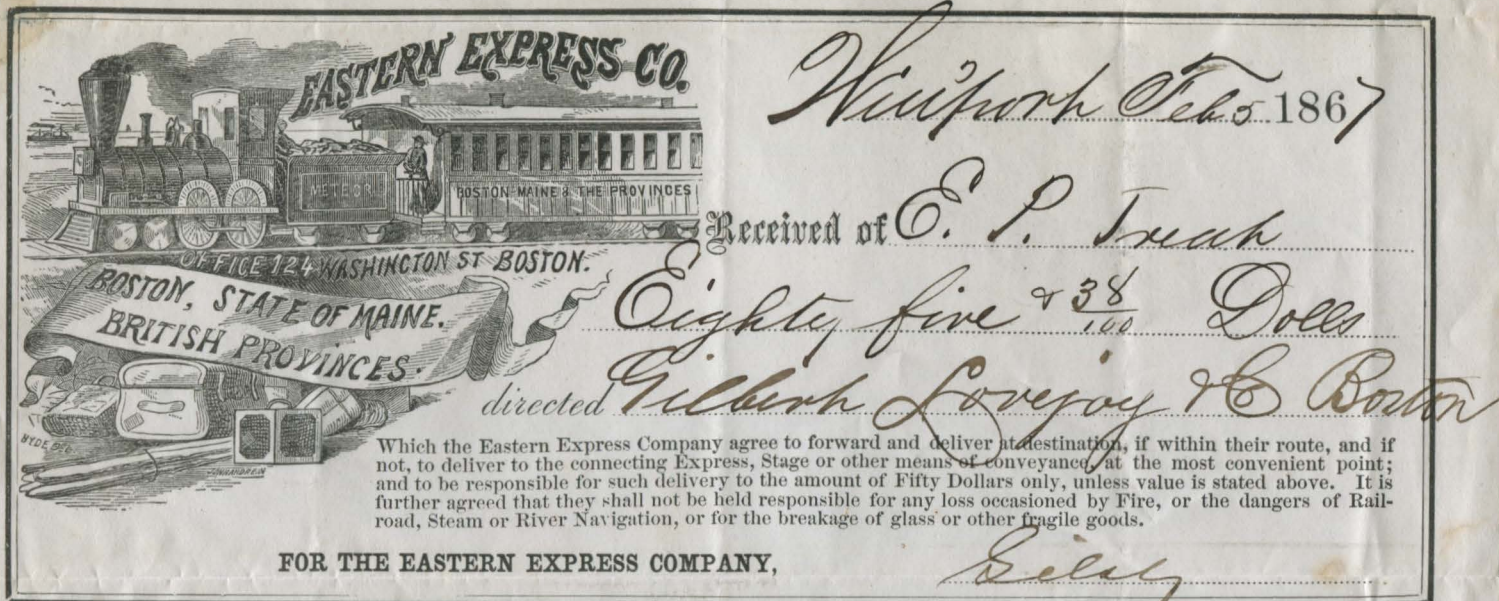 EASTERN EXPRESS CO.
METEOR
BOSTON MAINE & THE PROVINCES
OFFICE 124 WASHINGTON ST BOSTON.
BOSTON, STATE OF MAINE.
BRITISH PROVINCES.
Feb 5 1867
Received of E. P. Treat
Eighty five & 38/100 Dolls
directed Gilbert Lovejoy & Co Boston
Which the Eastern Express Company agree to forward and deliver at destination, if within their route, and if
not, to deliver to the connecting Express, Stage or other means of conveyance, at the most convenient point;
and to be responsible for such delivery to the amount of Fifty Dollars only, unless value is stated above. It is
further agreed that they shall not be held responsible for any loss occasioned by Fire, or the dangers of Rail-
road, Steam or River Navigation, or for the breakage of glass or other fragile goods.
FOR THE EASTERN EXPRESS COMPANY,